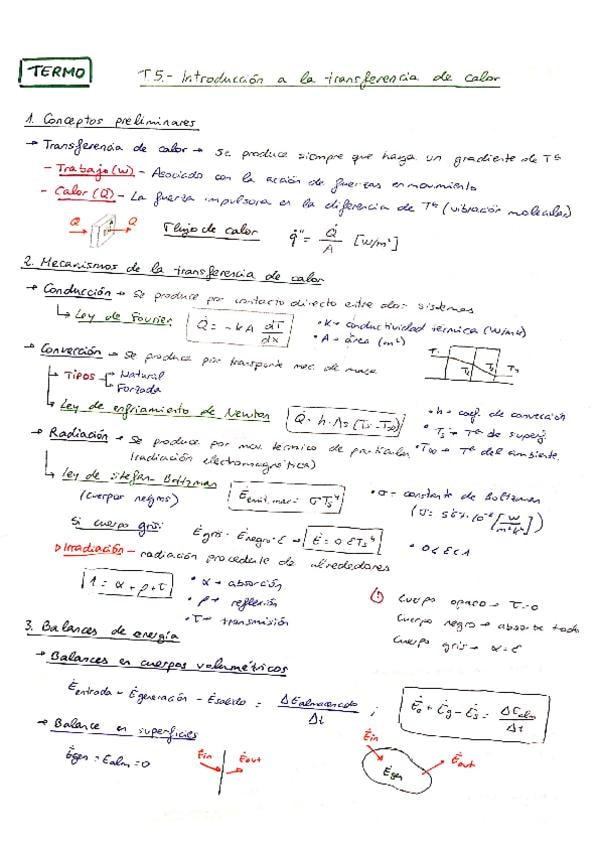 TERMO
T5.- Introducción a la transferencia de calor
1. Conceptos preliminares
→ Transferencia de calor → Se produce siempre que haya un gradiente de Tª
- Trabajo (W) - Asociado con la acción de fuerzas en movimiento
- Calor (Q) - La fuerza impulsora es la diferencia de Tª (vibración molecular)
Q Q Flujo de calor q̇'' = Q̇/A [W/m²]
2. Mecanismos de la transferencia de calor
→ Conducción → Se produce por contacto directo entre dos sistemas
↳ Ley de Fourier Q̇ = -kA dT/dx • K = conductividad térmica (W/mK)
• A = área (m²)
→ Convección → Se produce por transporte mac. de masa
↳ Tipos Natural
Forzada
↳ Ley de enfriamiento de Newton Q̇ = h·As (Ts - T∞) • h = coef. de convección
• Ts → Tª de superf.
→ Radiación → Se produce por mov. térmico de partículas • T∞ → Tª del ambiente
(radiación electromagnética)
↳ Ley de Stefan-Boltzman Ėemit.max = σTs⁴ • σ = constante de Boltzman
(cuerpos negros) (σ = 5'67·10⁻⁸ [W/m²K⁴])
Si cuerpo gris: Ėgris = Ėnegro·ε → Ė = σεTs⁴ • 0<ε<1
▷ Irradiación - radiación procedente de alrededores
1 = α + ρ + τ • α → absorción
• ρ → reflexión
• τ → transmisión
! Cuerpo opaco → τ=0
Cuerpo negro → absorbe todo
Cuerpo gris → α=ε
3. Balances de energía
→ Balances en cuerpos volumétricos
Ėentrada - Ėgeneración - Ėsalida = ΔEalmacenado/Δt ; Ėe + Ėg - Ės = ΔEalm/Δt
→ Balance en superficies
Ėgen = Ealm = 0 Ėin Ėout Ėin Ėgen Ėout